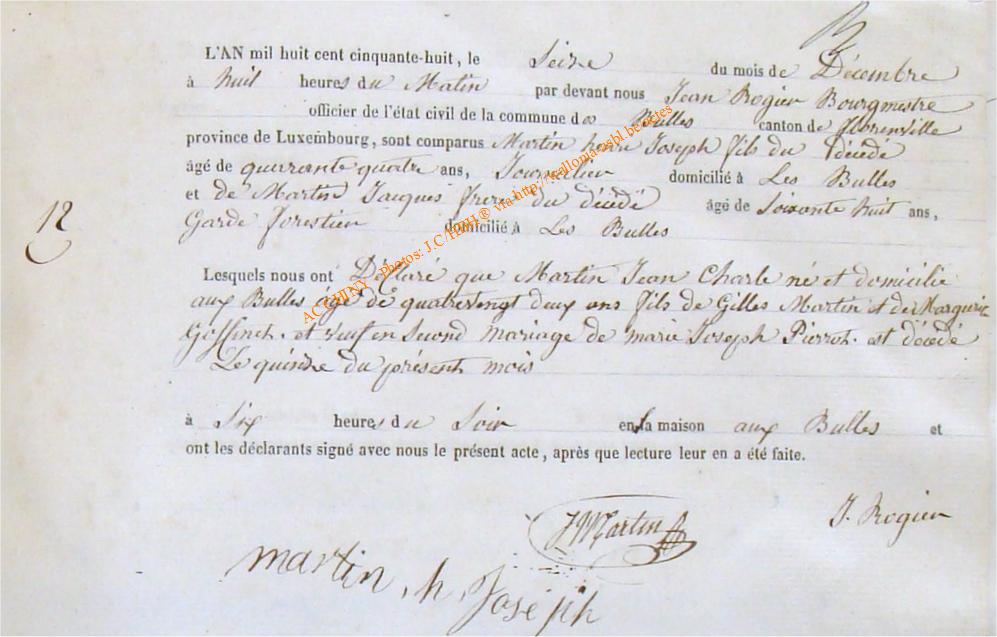 L'AN mil huit cent cinquante-huit, le Seize du mois de Décembre
à huit heures du Matin par devant nous Jean Rogier Bourgmestre
officier de l'état civil de la commune des Bulles canton de florenville
province de Luxembourg, sont comparus Martin henri Joseph fils du décédé
âgé de quarante quatre ans, Journalier domicilié à Les Bulles
et de Martin Jacques frere du décédé âgé de Soixante huit ans,
Garde forestier domicilié à Les Bulles
12
Lesquels nous ont Déclaré que Martin Jean Charle né et domicilié
aux Bulles âgé de quatrevingt deux ans fils de Gilles Martin et de Marguerite
Goffinet. et veuf en second mariage de marie Joseph Pierrot. est décédé
Le quinze du présent mois
à Six heures du Soir en la maison aux Bulles et
ont les déclarants signé avec nous le présent acte, après que lecture leur en a été faite.
JMartin
J. Rogier
martin, h, Joséph
ACCHINY Photos: J.C/HDH ® via http://wallonia-asbl.be/actes